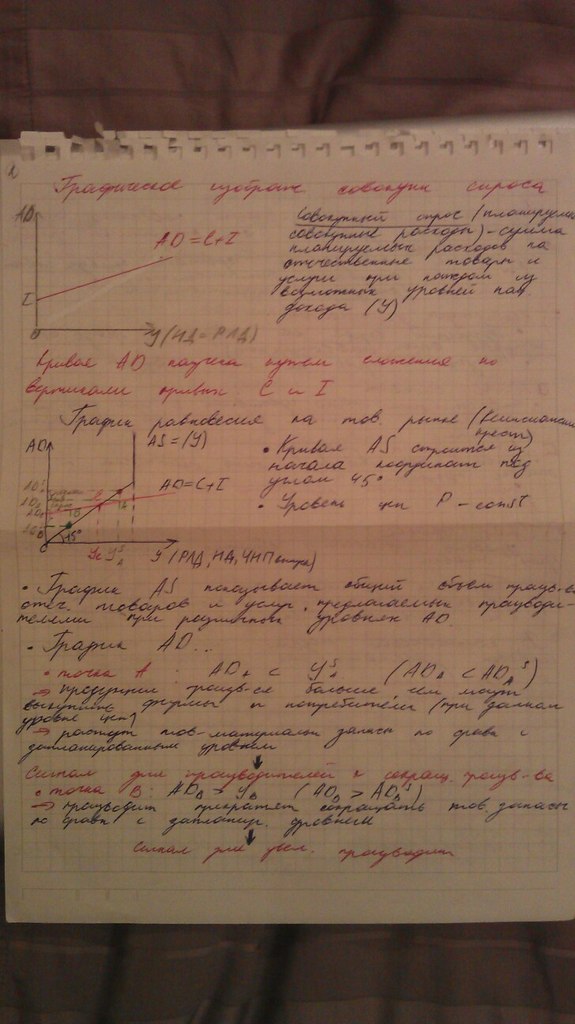 Графическое изображ совокупн спроса
AD
AD = C+I
I
0
Y (НД = РЛД)
Совокупный спрос (планируем
совокупные расходы) - сумма
планируемых расходов на
отечественные товары и
услуги при каждом из
возможных уровней нац.
дохода (Y)
Кривая AD получена путём сложения по
вертикали кривых C и I
График равновесия на тов. рынке (Кейнсианский
крест)
AD
AS = (Y)
AD = C+I
45°
0
Y (РЛД, НД, ЧНП
• Кривая AS строится из
начала координат под
углом 45°
• Уровень цен P - const
• График AS показывает общий объём произв-ва
отеч. товаров и услуг, предлагаемых производи-
телями при различном уровнях AD.
• График AD...
• точка A : AD_A < Y_A^S (AD_A < AD_A^S)
→ продукции больше, чем могут
выкупить фирмы и потребители (при данном
уровне цен)
→ растут тов-материальн запасы по сравн с
запланированным уровнем
Сигнал для производителей к сокращ. произв-ва
• точка B: AD_B > Y_B (AD_B > AD_B^S)
→ сокращать тов. запасы
по сравн с запланир. уровнем
Сигнал для увел. производит